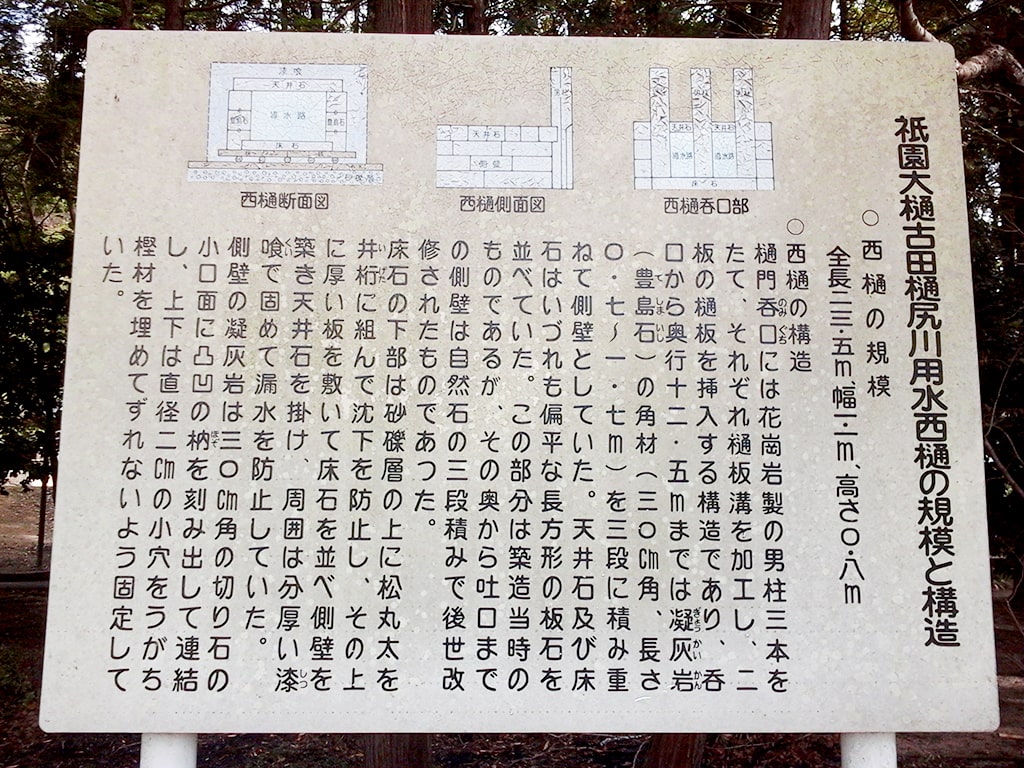 祇園大樋古田樋尻川用水西樋の規模と構造
○西樋の規模
全長二三・五m幅一・二m、高さ〇・八m
○西樋の構造
樋門呑口には花崗岩製の男柱三本を
たて、それぞれ樋板溝を加工し、二
板の樋板を挿入する構造であり、呑
口から奥行十二・五mまでは凝灰岩
(豊島石)の角材(三〇㎝角、長さ
〇・七〜一・七m)を三段に積み重
ねて側壁としていた。天井石及び床
石はいづれも偏平な長方形の板石を
並べていた。この部分は築造当時の
ものであるが、その奥から吐口まで
の側壁は自然石の三段積みで後世改
修されたものであつた。
床石の下部は砂礫層の上に松丸太を
井桁に組んで沈下を防止し、その上
に厚い板を敷いて床石を並べ側壁を
築き天井石を掛け、周囲は分厚い漆
喰で固めて漏水を防止していた。
側壁の凝灰岩は三〇㎝角の切り石の
小口面に凸凹の枘を刻み出して連結
し、上下は直径二㎝の小穴をうがち
樫材を埋めてずれないよう固定して
いた。
西樋呑口部
天井石
天井石
導水路
導水路
床石
西樋側面図
天井石
側壁
西樋断面図
漆喰
天井石
豊島石
導水路
豊島石
床石